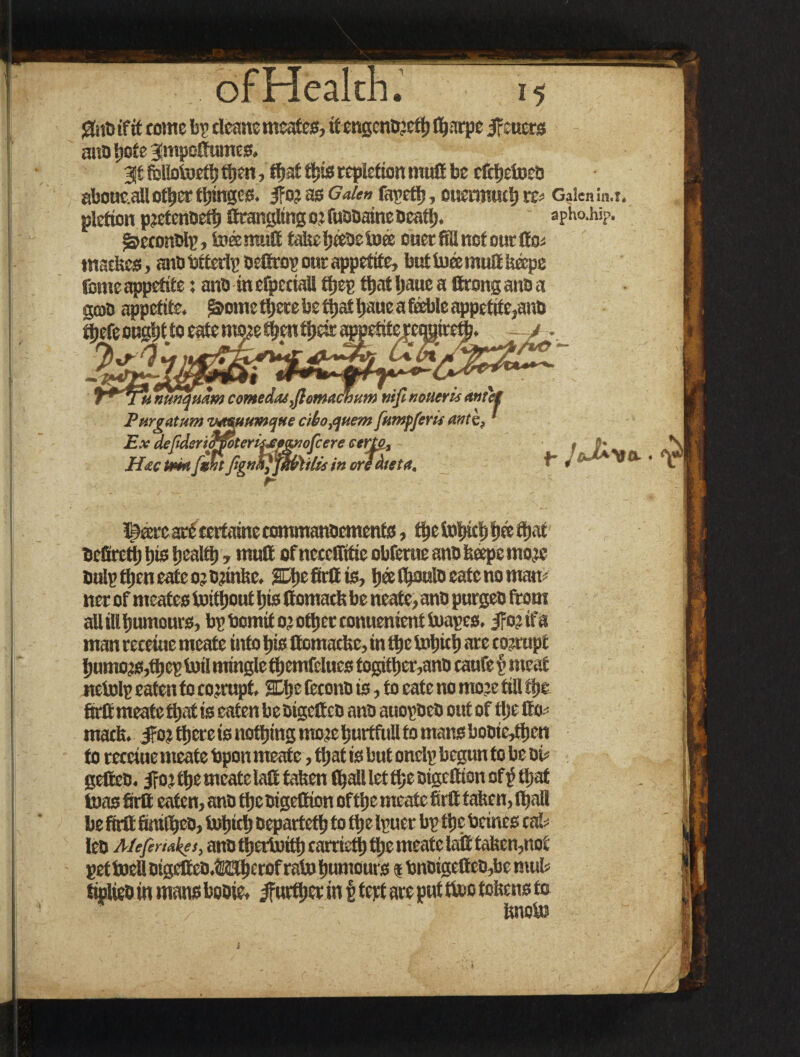 of Health. 15
And if it come by cleane meates, it engendreth sharpe Feuers
and hote Impostumes.
It followeth then, that this repletion must be eschewed
aboue all other thinges. For as Galen sayeth, ouermuch re-
pletion pretendeth strangling or suddaine death.
Galen in.1.
apho.hip.
Secondly, wée must take héede wée ouer fill not our sto-
mackes, and vtterly destroy our appetite, but wée must kéepe
some appetite: and in especiall they that haue a strong and a
good appetite. Some there be that haue a féeble appetite, and
these ought to eate more then their appetite requireth.
Tu nunquam comedas, stomachum nisi noueris antè
Purgatum vacuumque cibo, quem sumpseris antè,
Ex desiderio poteris cognoscere certo,
Hæc sunt signa, in ore diæta.
Héere are certaine commandements, the which hée that
desireth his health, must of necessitie obserue and kéepe more
duly then eate or drinke. The first is, hée should eate no man-
ner of meates without his stomack be neate, and purged from
all ill humours, by vomit or other conuenient wayes. For if a
man receiue meate into his stomacke, in the which are corrupt
humors, they wil mingle themselues togither, and cause ẏ meat
newly eaten to corrupt. The second is, to eate no more till the
first meate that is eaten be digested and auoyded out of the sto-
mack. For there is nothing more hurtfull to mans bodie, then
to receiue meate vpon meate, that is but onely begun to be di-
gested. For the meate last taken shall let the digestion of ẏ that
was first eaten, and the digestion of the meate first taken, shall
be first finished, which departeth to the lyuer by the veines cal-
led Meseriakes, and therwith carrieth the meate last taken, not
yet well digested. Wherof raw humours & vndigested, be mul-
tiplied in mans bodie. Further in ẏ text are put two tokens to
know